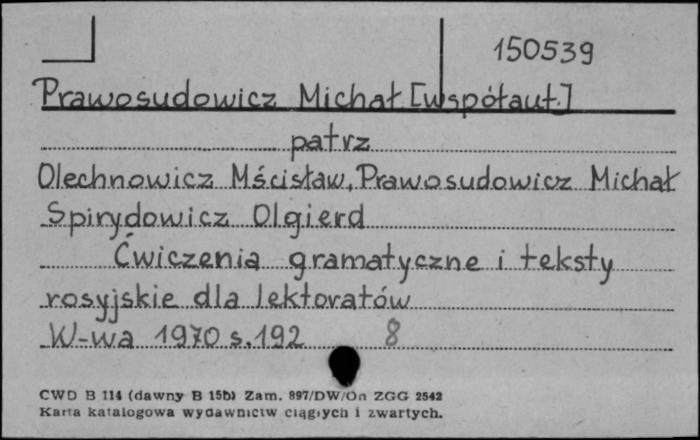 150539
Prawosudowicz Michał [współaut.]
patrz
Olechnowicz Mścisław, Prawosudowicz Michał
Spirydowicz Olgierd
Ćwiczenia gramatyczne i teksty
rosyjskie dla lektoratów
W-wa 1970 s. 192 8
CWD B 114 (dawny B 15b) Zam. 897/DW/On ZGG 2542
Karta katalogowa wydawnictw ciągłych i zwartych.